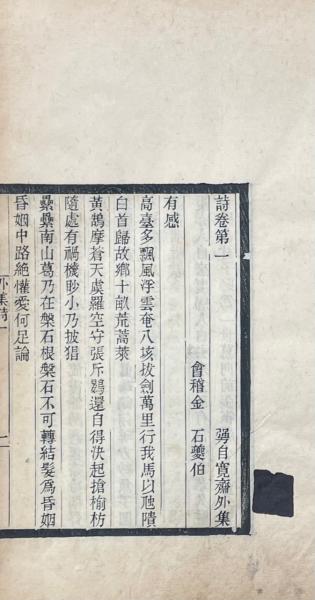 詩卷第一 彊自寬齋外集
會稽金 石夔伯
有感
高臺多飄風浮雲奄八垓拔劍萬里行我馬以虺隤
白首歸故鄉十畝荒蒿萊
黃鵠摩蒼天虞羅空守張斥鷃還自得決起搶榆枋
隨處有禍機眇小乃披猖
纍纍南山葛乃在槃石根槃石不可轉結髮爲昏姻
昏姻中路絶懽愛何足論
外集詩一